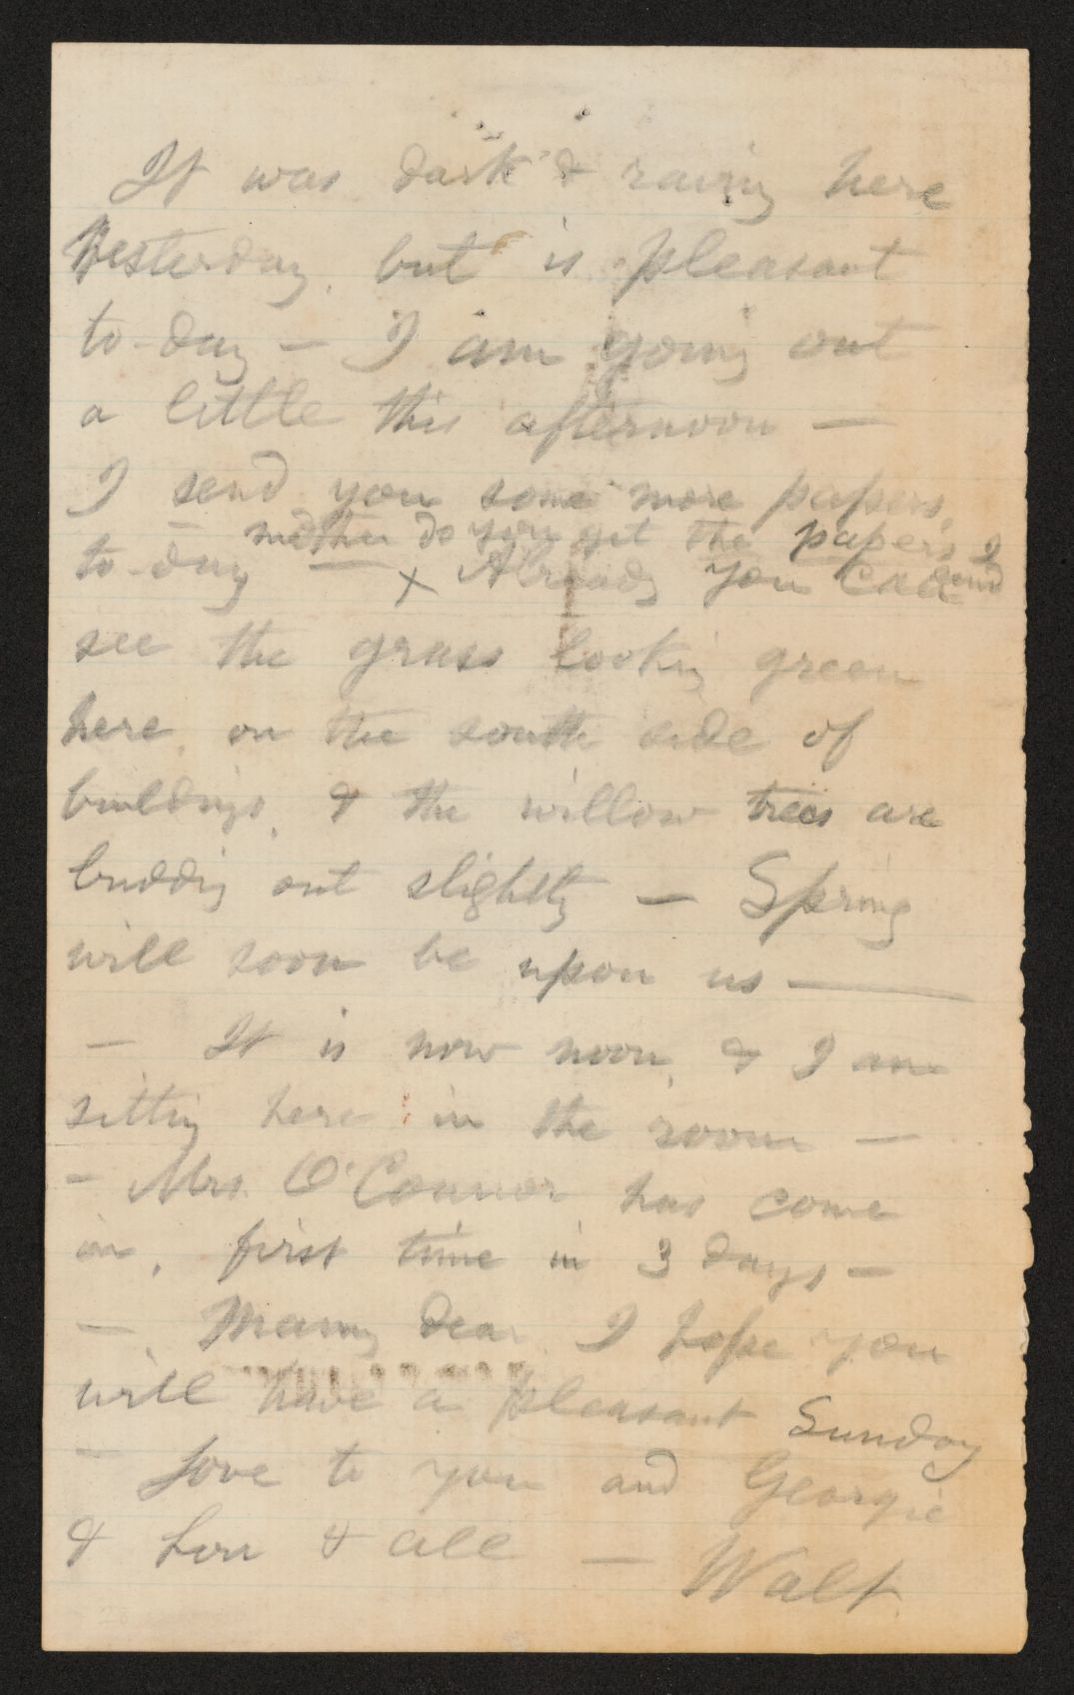 It was dark & rainy here
Yesterday, but is pleasant
to-day — I am going out
a little this afternoon —
I send you some more papers,
mother do you get the papers I send
to-day — x Already you can
see the grass lookig green
here, on the south side of
buildings, & the willow trees are
buddig out slightly — Spring
will soon be upon us —
— It is now noon, & I am
sittig here in the room —
— Mrs. O'Connor has come
in, first time in 3 days —
— Mamy dear I hope you
will have a pleasant Sunday
— Love to you and Georgie
& Lou & all — Walt.